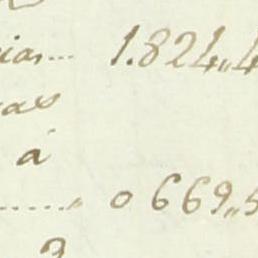 ias... 1.824,,4
as
á
......,, 0 669,,5
3